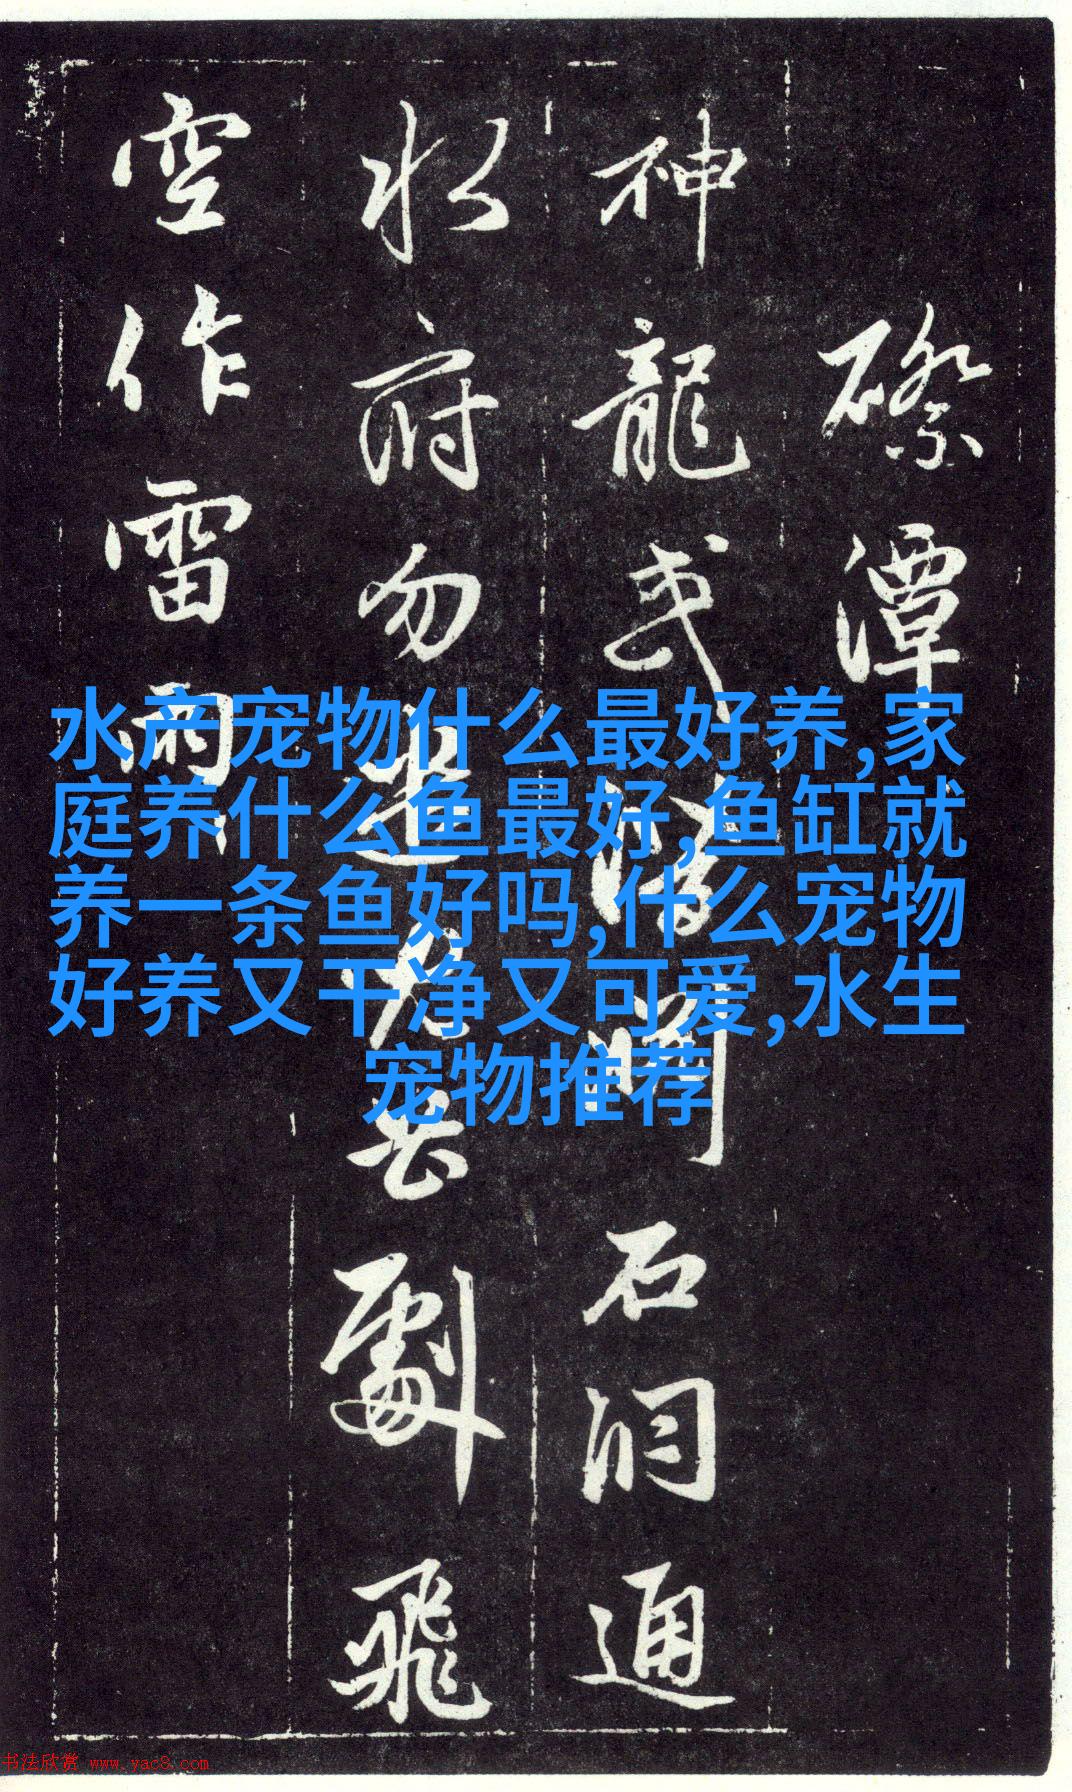 磜潭
神龍或潛淵石洞通
水府勿劇飛
空作雷雨
水产宠物什么最好养,家
庭养什么鱼最好,鱼缸就
养一条鱼好吗,什么宠物
好养又干净又可爱,水生
宠物推荐
书法欣赏 www.yac8.com